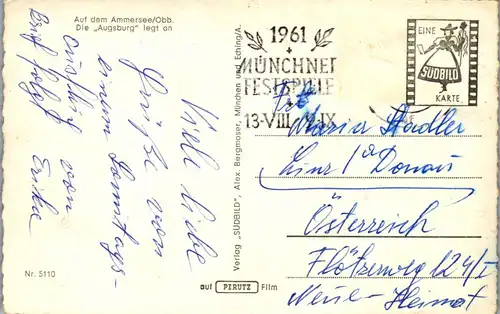 Auf dem Ammersee/Obb.
Die „Augsburg" legt an
Viele liebe
Grüße von
einem Samstags-
ausflug von
Erika
Brief folgt
Nr. 5110
Verlag „SÜDBILD", Alex. Bergmoser, München und Eching/A.
auf PERUTZ Film
1961
MÜNCHNER
FESTSPIELE
13-VIII 9-IX
EINE
SÜDBILD
KARTE
Maria Stadler
Linz / a Donau
Österreich
Flötzerweg 124/I
Neue-Heimat